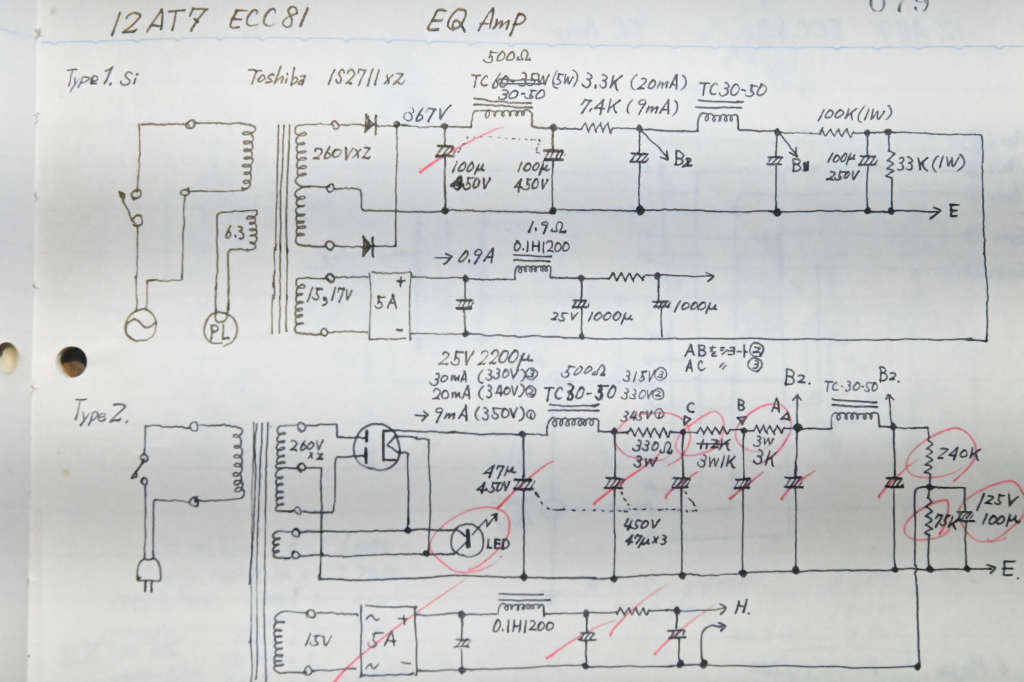 079
12AT7 ECC81 EQ Amp
Type1. Si Toshiba 1S2711×2
500Ω
TC 60-35W (5W) 3.3K (20mA)
30-50
7.4K (9mA)
TC30-50
367V
100K(1W)
260V×2
100μ
450V
100μ
450V
B2
B1
100μ
250V
33K(1W)
E
6.3
1.9Ω
0.1H1200
→0.9A
15,17V
5A
+
-
25V
1000μ
1000μ
PL
25V 2200μ
30mA (330V)③
20mA (340V)②
→ 9mA (350V)①
500Ω
TC30-50
315V③
330V②
345V①
ABを ショート②
AC 〃 ③
Type2.
C
B
A
B2.
TC-30-50
B2.
260V
×2
330Ω
3W
1.2K
3W1K
3W
3K
240K
47μ
450V
450V
47μ×3
75K
125V
100μ
LED
E.
15V
5A
~
+
~
-
0.1H1200
H.